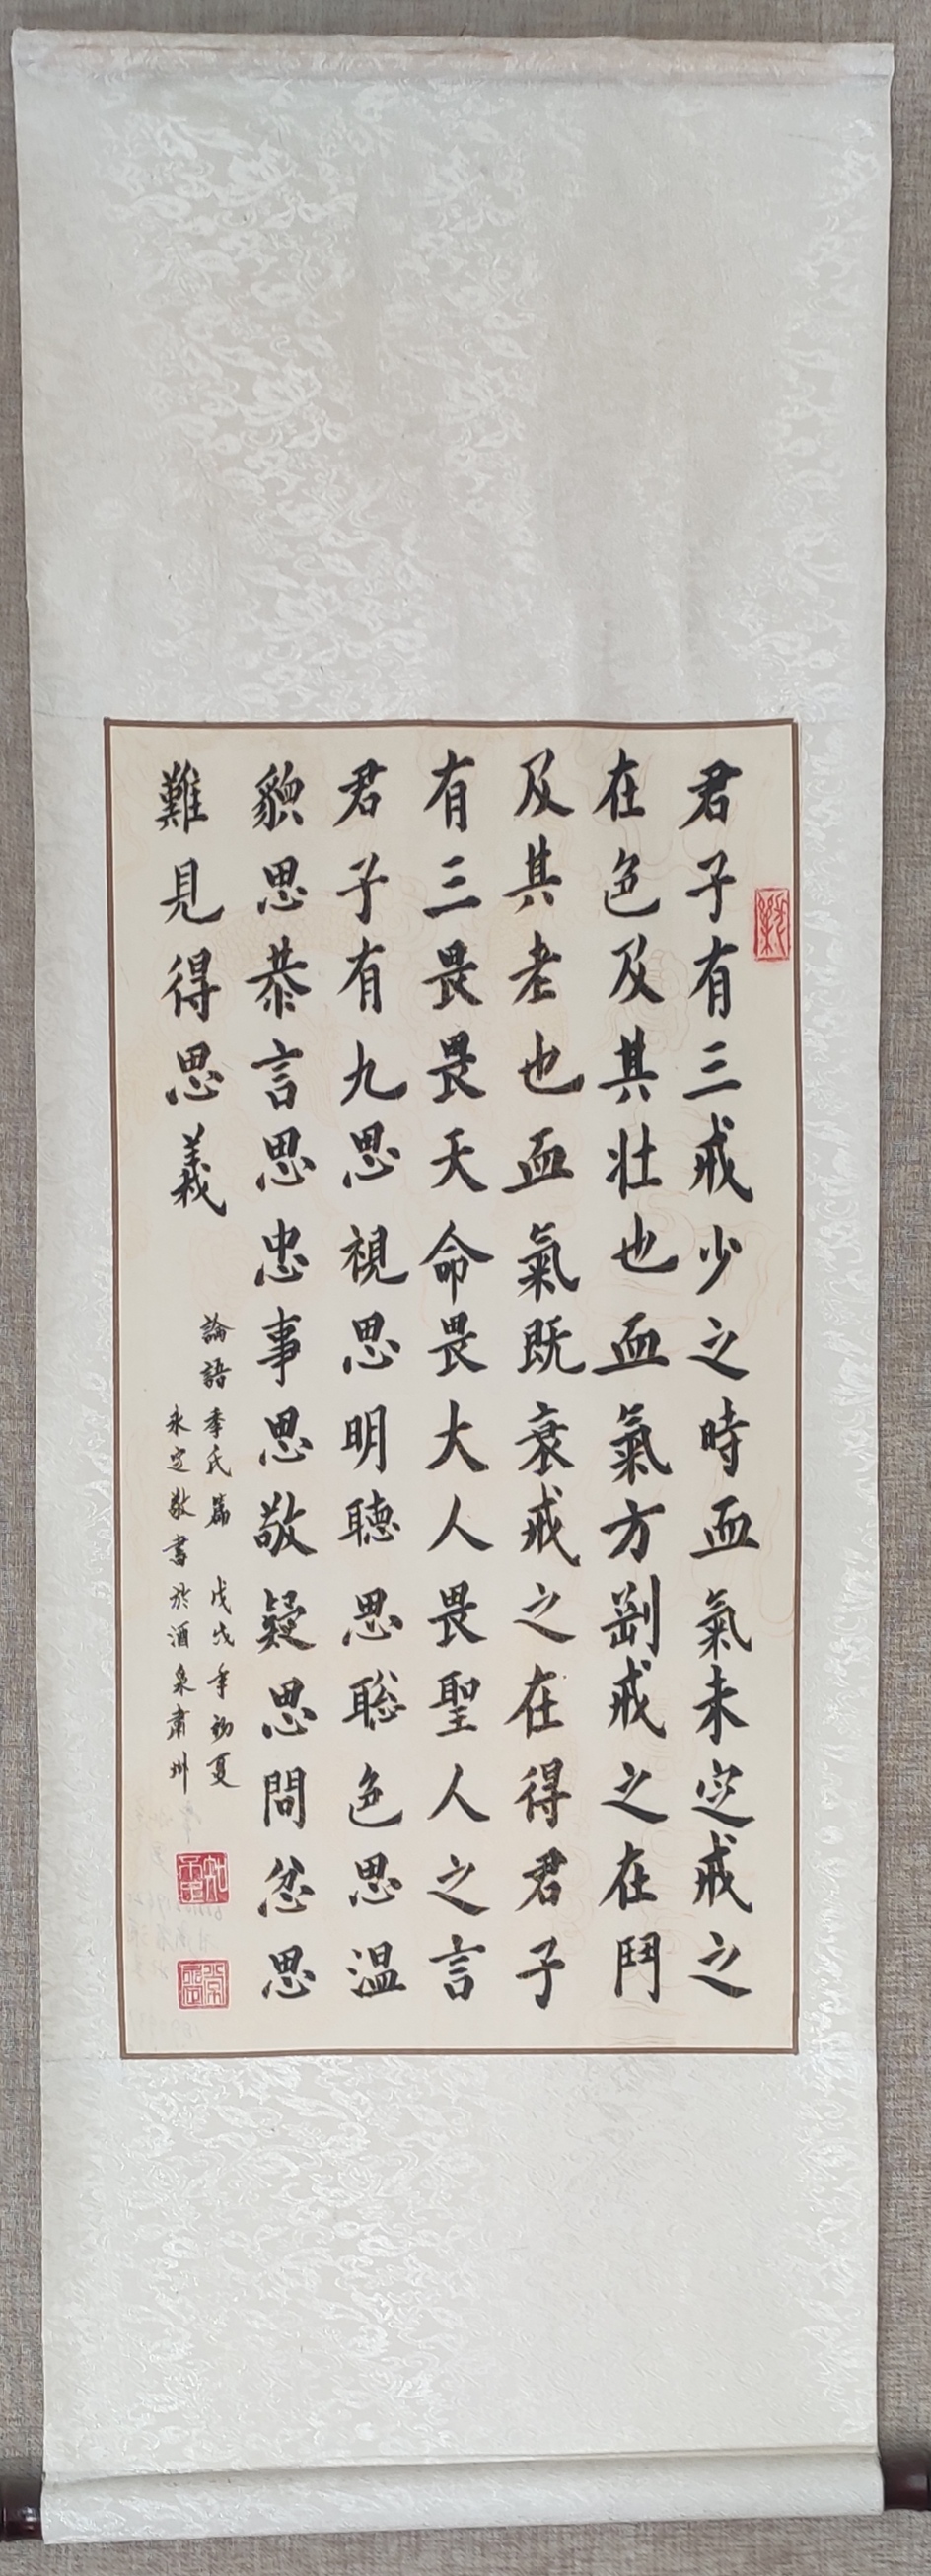 君子有三戒少之時血氣未定戒之
在色及其壯也血氣方剛戒之在鬥
及其老也血氣既衰戒之在得君子
有三畏畏天命畏大人畏聖人之言
君子有九思視思明聽思聰色思溫
貌思恭言思忠事思敬疑思問忿思
難見得思義
論語季氏篇 戊戌年初夏
永定敬書於酒泉肅州